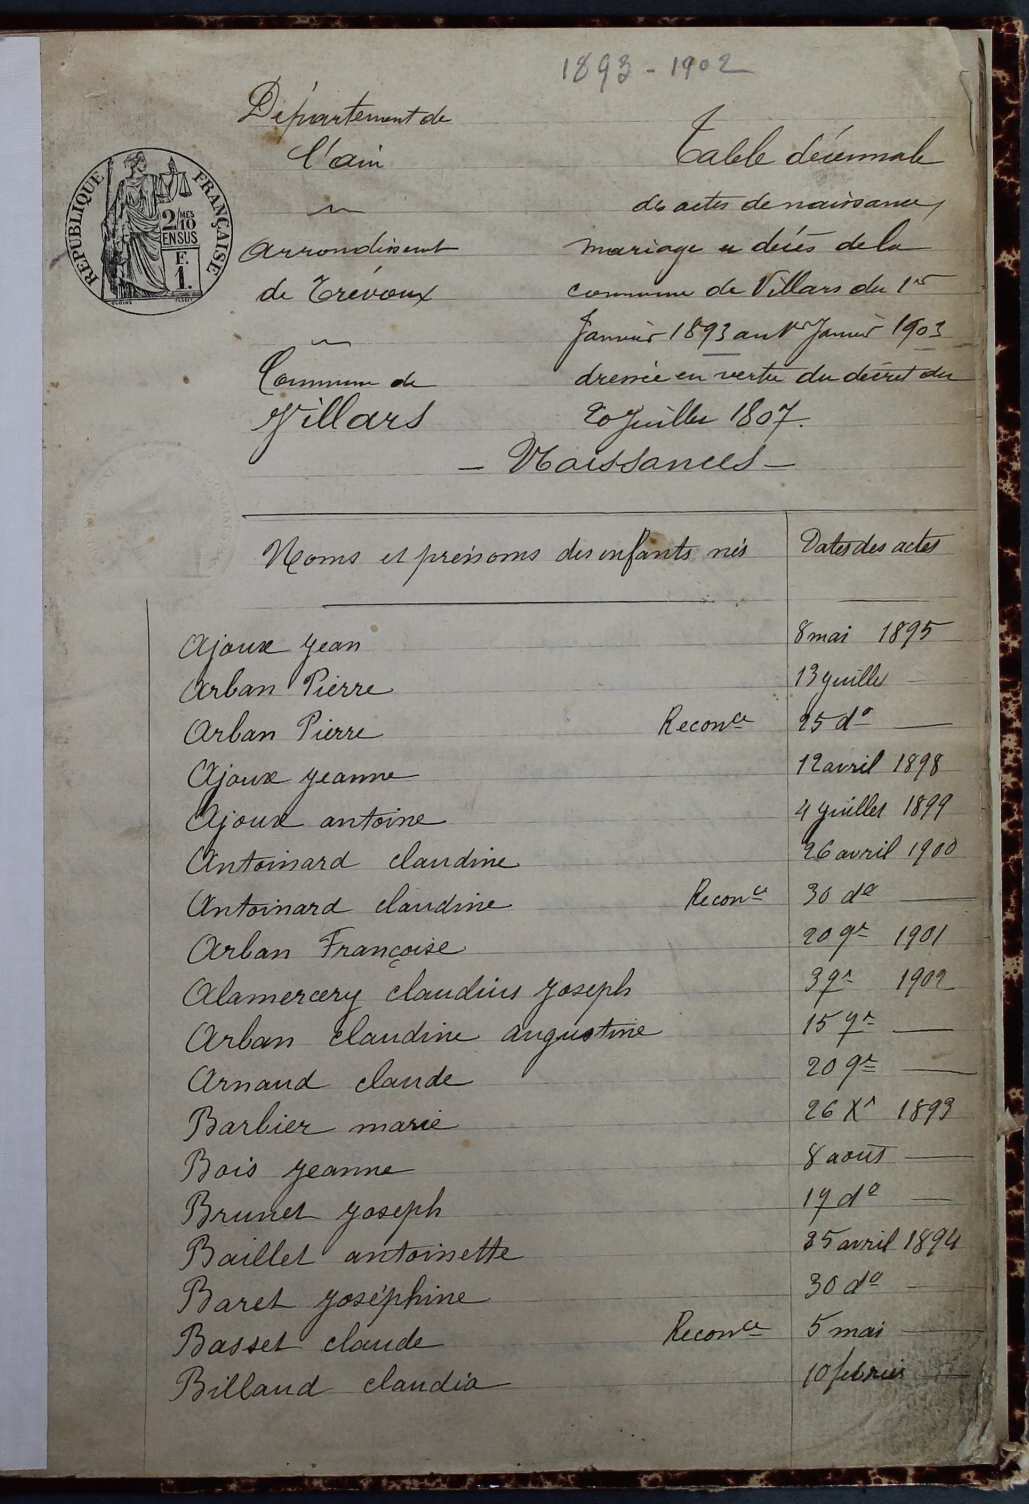 1893 - 1902
Département de
l'ain
Arrondissemt
de Trévoux
Commune de
Villars
RÉPUBLIQUE FRANÇAISE
2/10 MES
EN SUS
F.
1.
Table décennale
des actes de naissance,
mariage et décès de la
commune de Villars du 1er
Janvier 1893 au 1er Janvier 1903
dressée en vertu du décret du
20 Juillet 1807.
- Naissances -
Noms et prénoms des enfants nés Dates des actes
Ajoux Jean 8 mai 1895
Arban Pierre 13 juillet —
Arban Pierre Reconce 25 do —
Ajoux Jeanne 12 avril 1898
Ajoux antoine 4 juillet 1899
Antoinard claudine 26 avril 1900
Antoinard claudine Reconce 30 do —
Arban Françoise 20 9r 1901
Alamercery claudius Joseph 3 7r 1902
Arban claudine augustine 15 7r —
Arnaud claude 20 9r —
Barbier marie 26 Xr 1893
Bois Jeanne 8 aout —
Brunet Joseph 17 do —
Baillet antoinette 25 avril 1894
Baret Joséphine 30 do —
Basset claude Reconce 5 mai —
Billaud claudia 10 février —